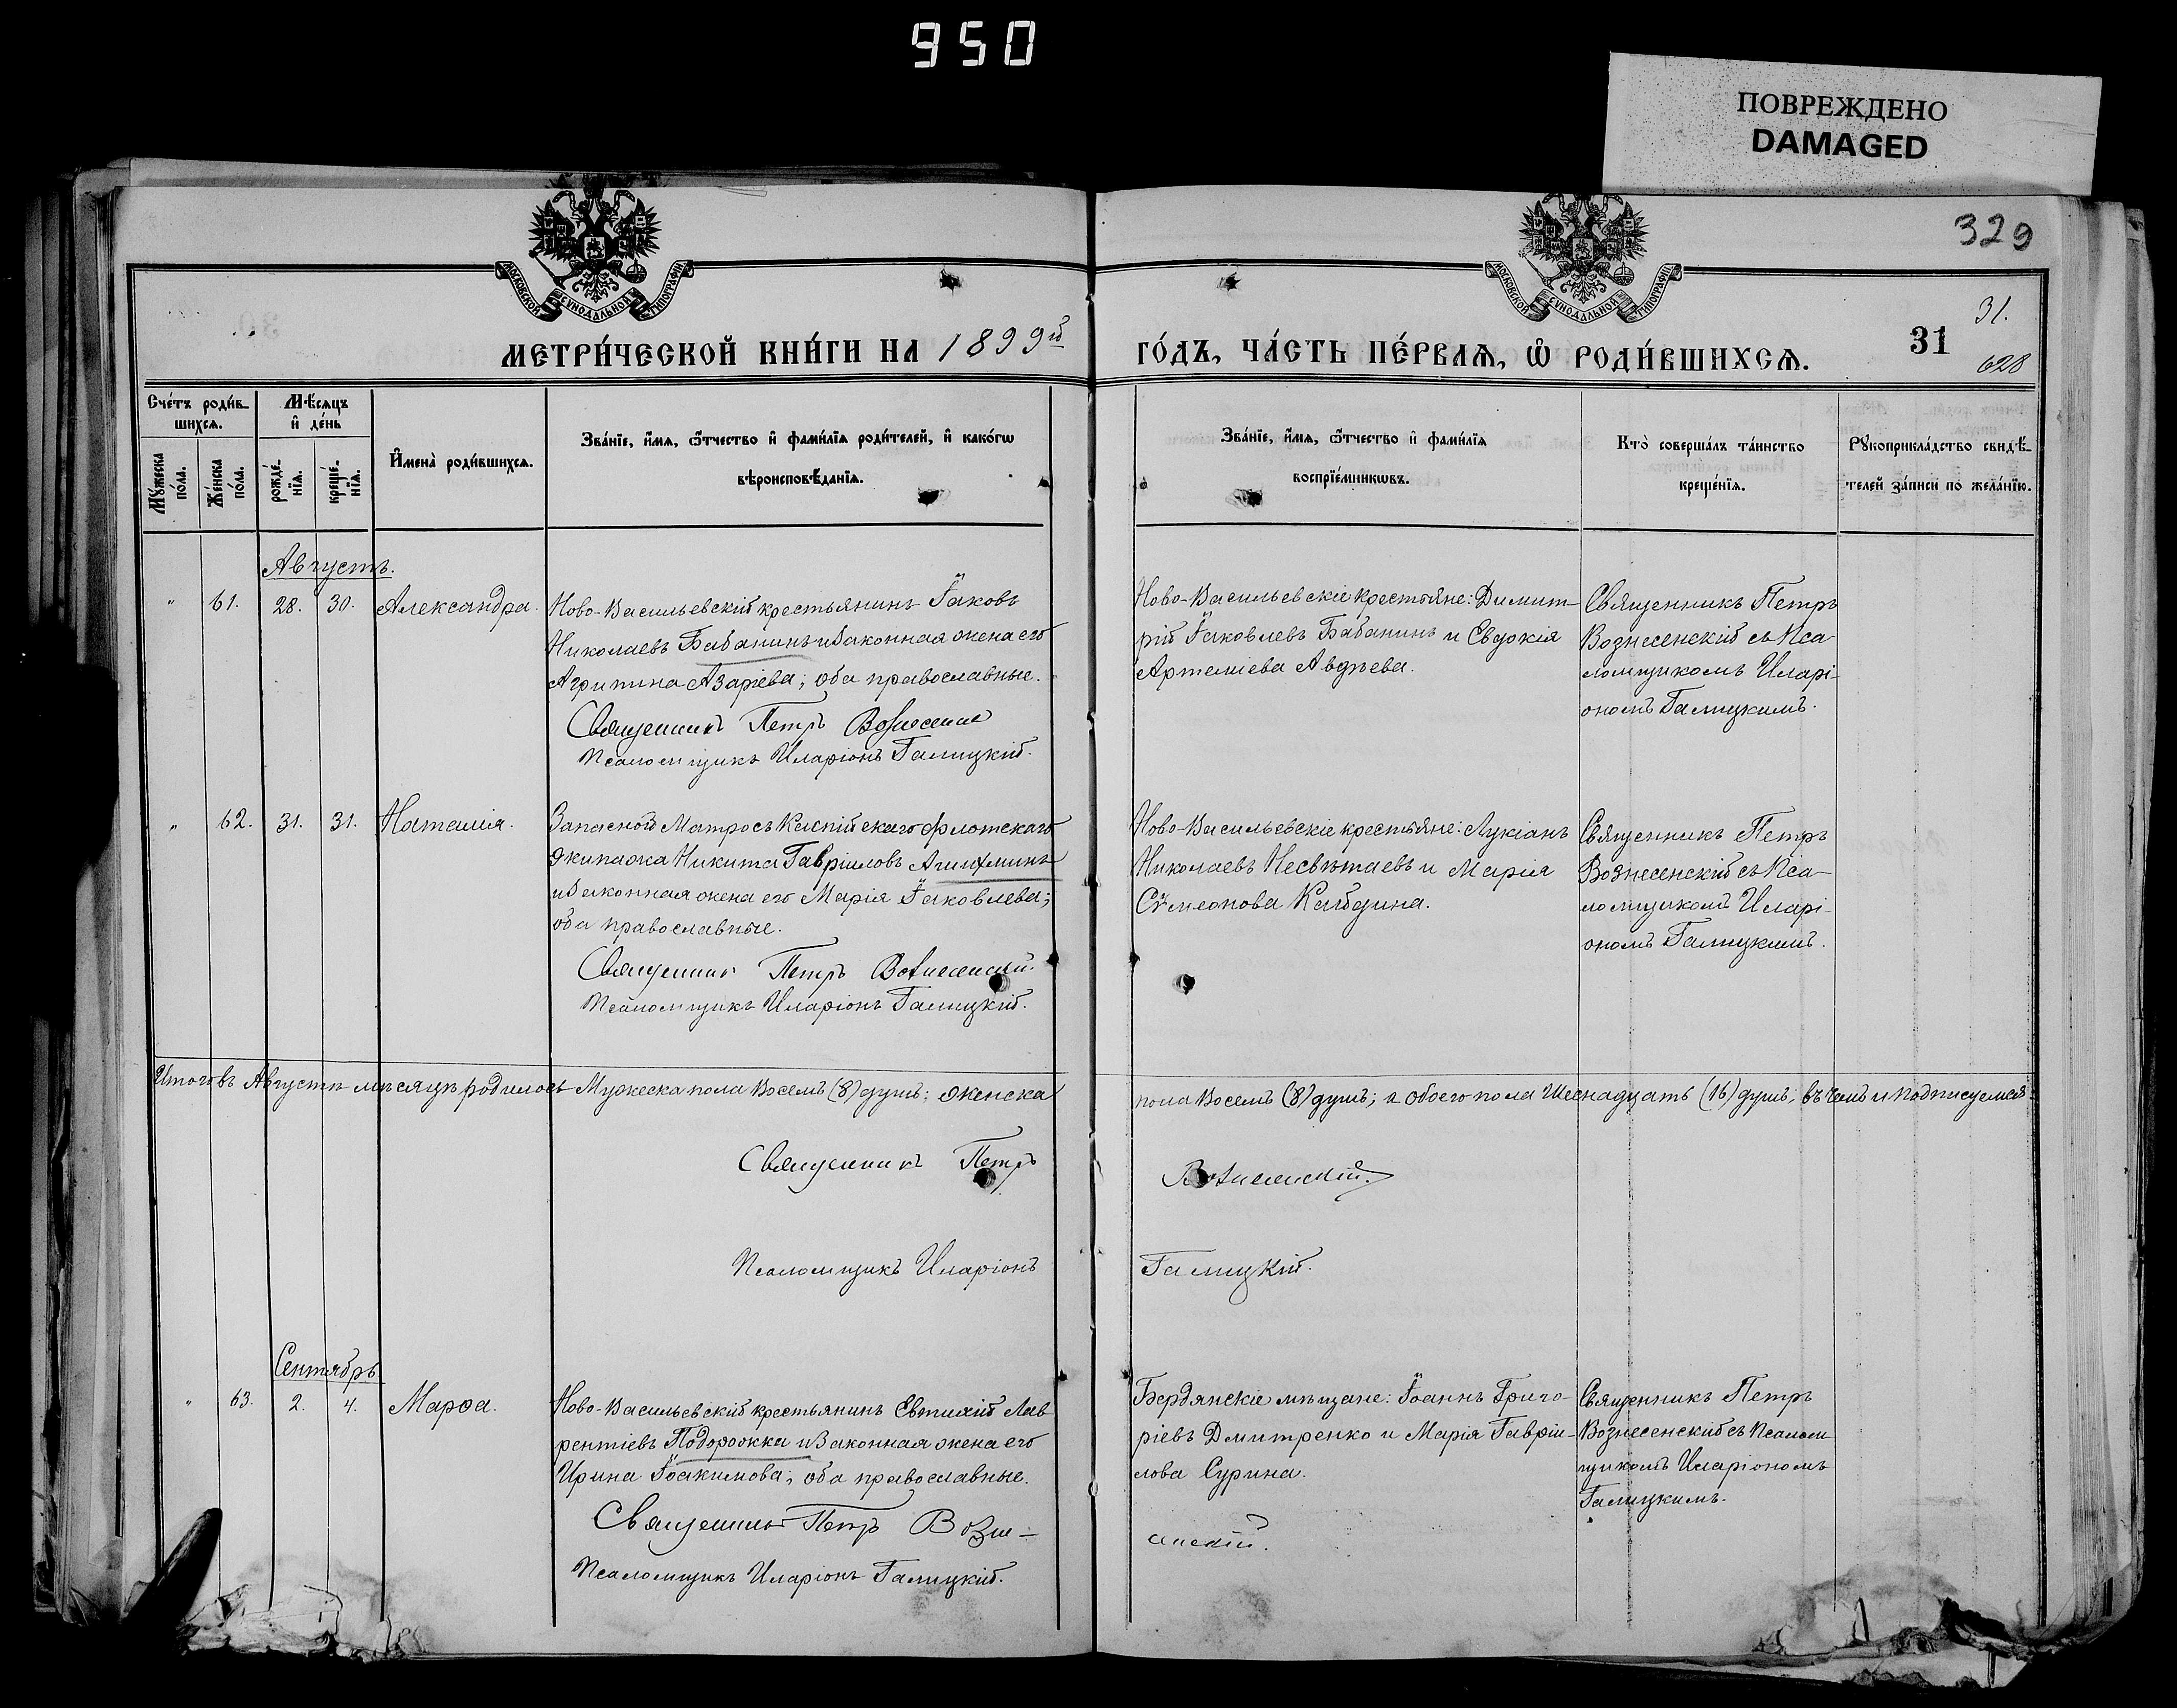 950
ПОВРЕЖДЕНО
DAMAGED
329
МОСКОВСКОЙ СѴНОДАЛЬНОЙ ТИПОГРАФІИ
МОСКОВСКОЙ СѴНОДАЛЬНОЙ ТИПОГРАФІИ
МЕТРИ́ЧЕСКОЙ КНИ́ГИ НА 1899й
ГО́ДЪ, ЧА́СТЬ ПЕ́РВАѦ, Ѡ҆ РОДИ́ВШИХСѦ.
31
31.
628
Сче́тъ роди́в-
шихсѧ.
Мѣ́сѧцъ
и҆ де́нь
Мꙋ́жеска
по́ла.
Же́нска
по́ла.
рожде́-
нїѧ.
креще́-
нїѧ.
И҆мена̀ роди́вшихсѧ.
Зва́нїе, и҆́мѧ, ѻ҆́тчество и҆ фами́лїѧ роди́телей, и҆ како́гѡ
вѣроисповѣ́данїѧ.
Зва́нїе, и҆́мѧ, ѻ҆́тчество и҆ фами́лїѧ
воспрїе́мникѡвъ.
Кто̀ соверша́лъ та́инство
креще́нїѧ.
Рꙋкоприкла́дство свидѣ́-
телей за́писи по жела́нїю.
Августъ.
" 61. 28. 30. Александра.
Ново-Васильевскій крестьянинъ Іаковъ
Николаевъ Бабанинъ и законная жена его
Агрипина Азаріева; оба православные.
Священникъ Петръ Вознесенск
Псаломщикъ Иларіонъ Галицкій.
Ново-Васильевскіе крестьяне: Димит-
рій Іаковлевъ Бабанинъ и Евдокія
Артеміева Авдѣева.
Священникъ Петръ
Вознесенскій съ Пса-
ломщикомъ Иларі-
ономъ Галицкимъ.
" 62. 31. 31. Наталія.
Запасной Матросъ Каспійскаго флотскаго
экипажа Никита Гавріиловъ
и законная жена его Марія Іаковлева;
оба православные.
Священник Петръ Вознесенский.
Псаломщикъ Иларіонъ Галицкій.
Ново-Васильевскіе крестьяне: Лукіанъ
Николаевъ Несвѣтаевъ и Марія
Сѵмеонова
Священникъ Петръ
Вознесенскій съ Пса-
ломщикомъ Иларі-
ономъ Галицкимъ.
Итого въ Августѣ мѣсяцѣ родилось Мужеска пола Восемь (8) душъ; женска
пола Восемь (8) душъ; а обоего пола Шеснадцать (16) душъ, въ чемъ и подписуемся:
Священникъ Петръ
Вознесенскій.
Псаломщикъ Иларіонъ
Галицкій.
Сентябрь
" 63. 2. 4. Марѳа.
Ново-Васильевскій крестьянинъ Евтихій Лав
рентіевъ Подорожка и законная жена его
Ирина Іоакимова; оба православные.
Священникъ Петръ Возне-
сенскій.
Псаломщикъ Иларіонъ Галицкій.
Бердянскіе мѣщане: Іоаннъ Григо-
ріевъ Дмитренко и Марія Гавріи-
лова Сурина.
Священникъ Петръ
Вознесенскій съ Псалом
щикомъ Иларіономъ
Галицкимъ.